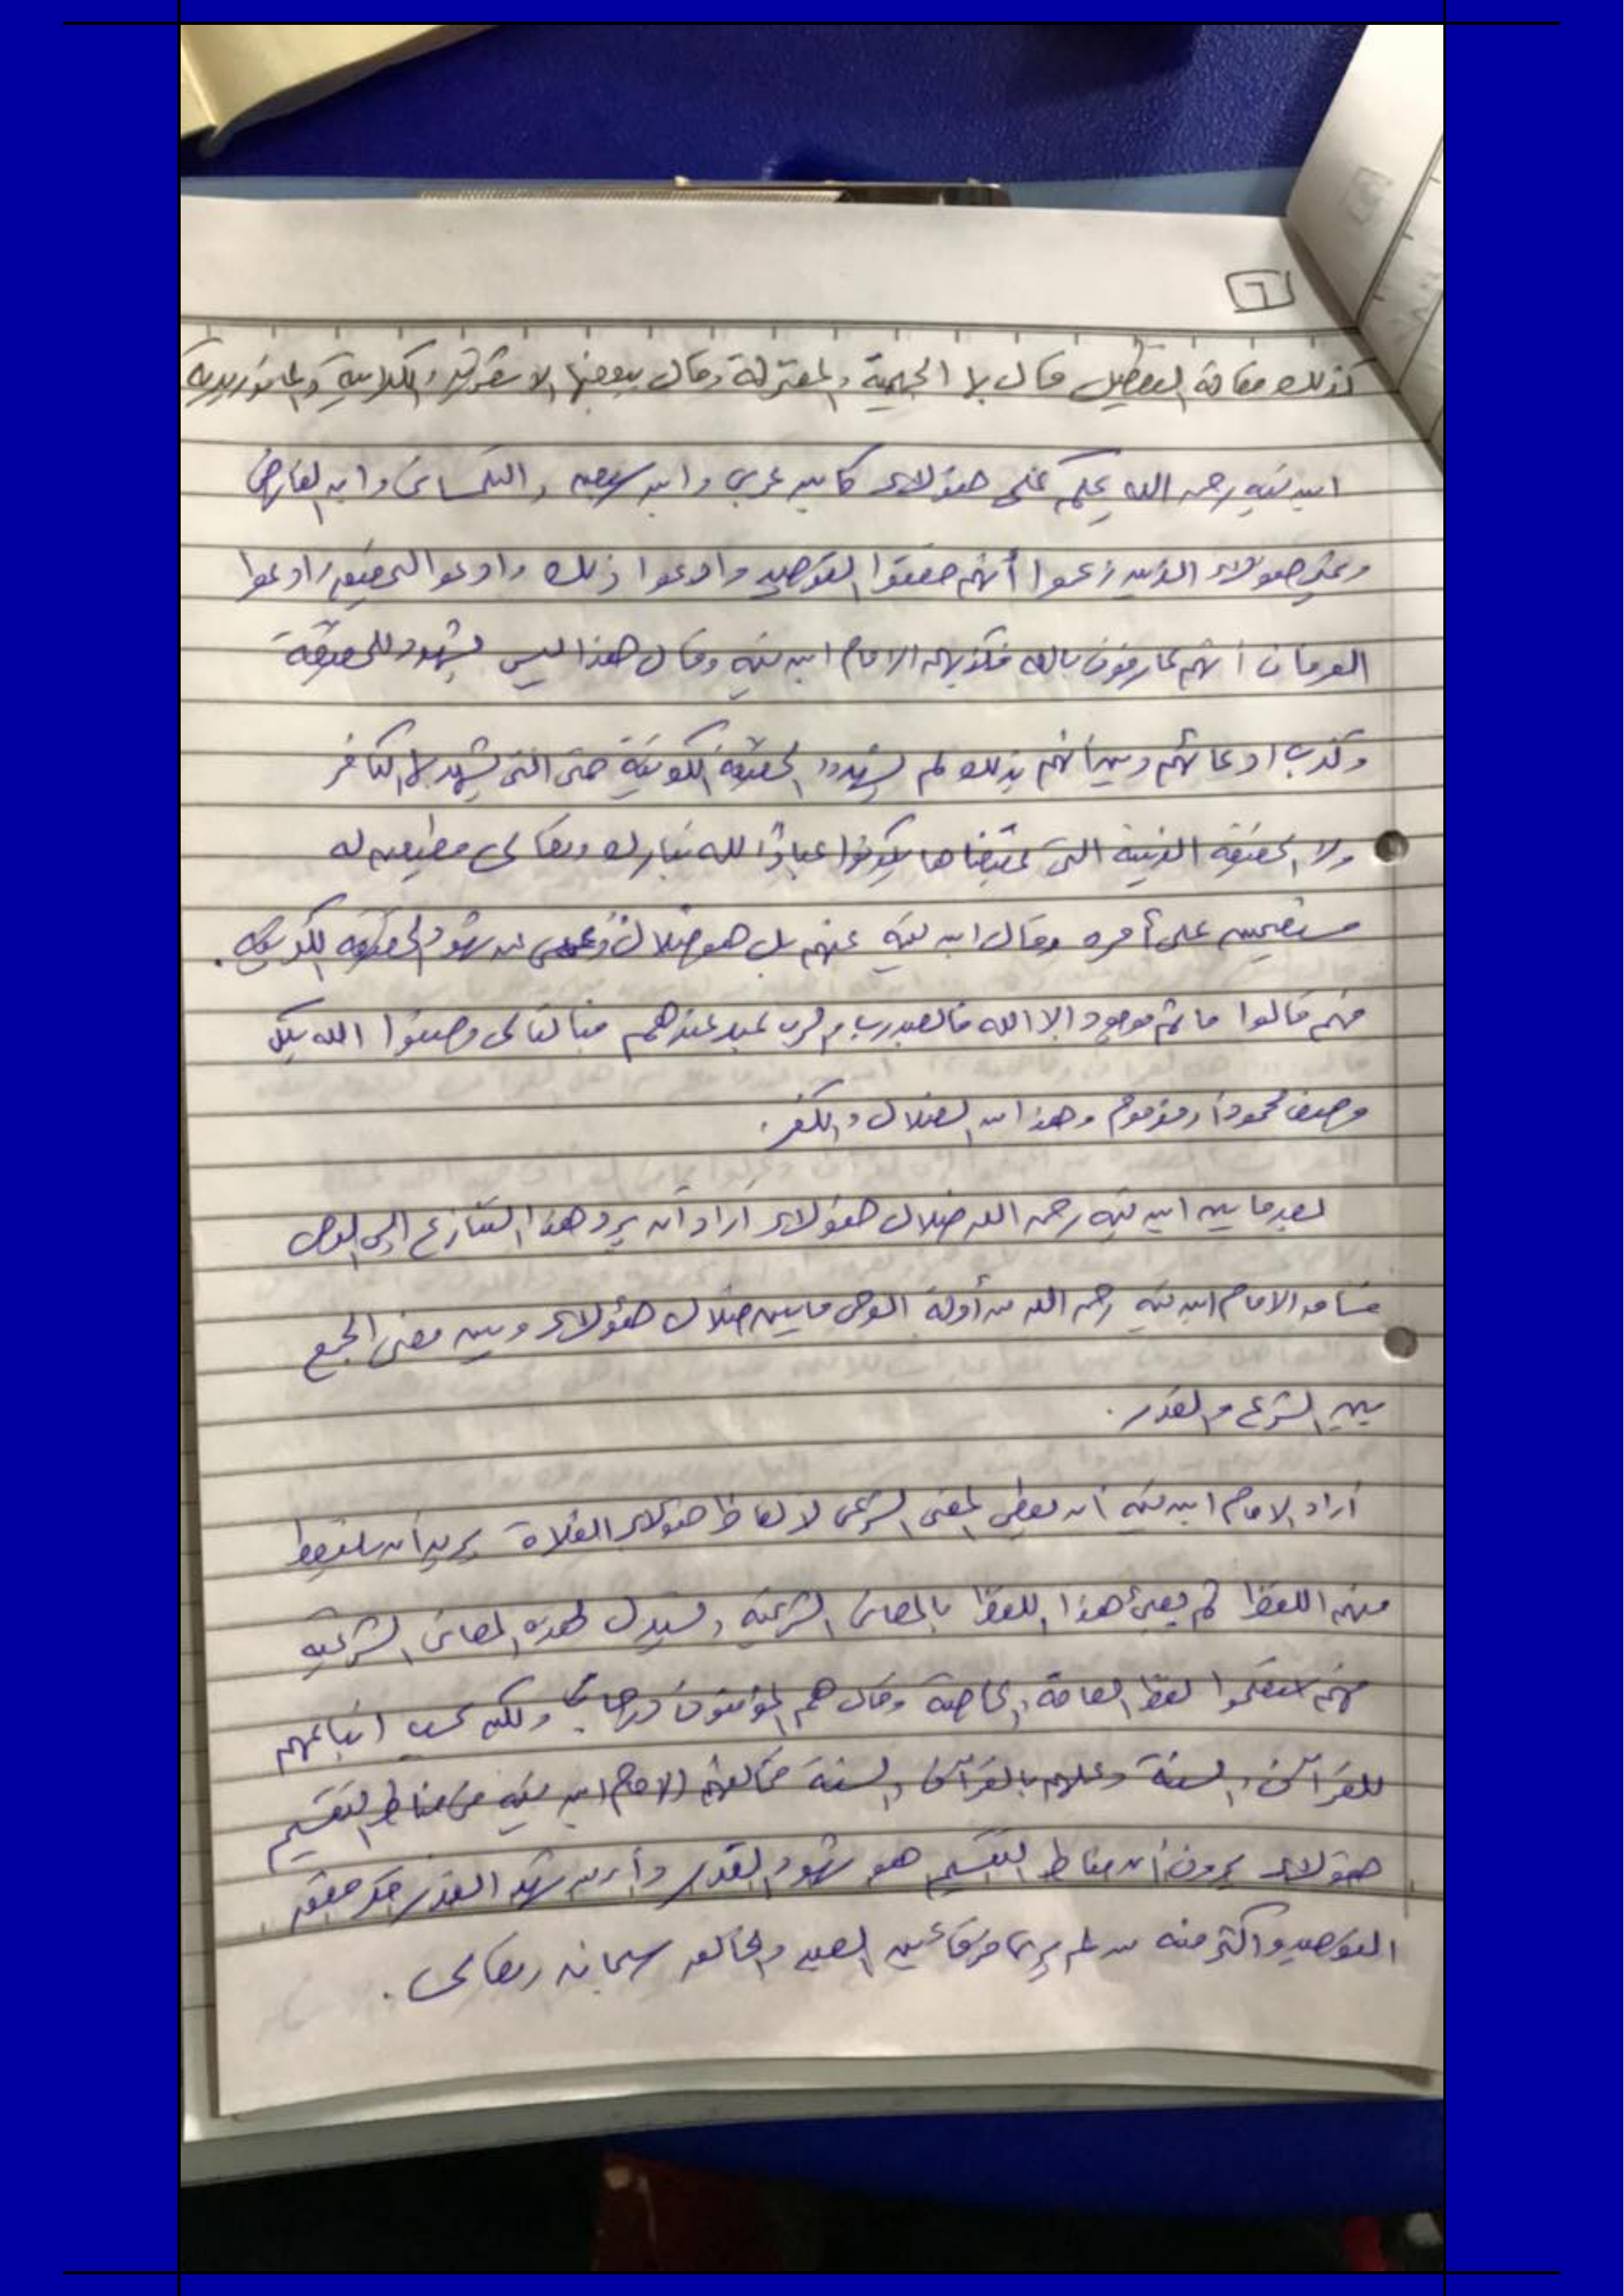 ٦
كذلك مقالة التعطيل قال بها الجهمية والمعتزلة وقال ببعضها الاشعرية والكلابية والماتوريدية
ابن تيميه رحمه الله يحكم على هؤلاء كابن عربي وابن سبعين والتلمساني وابن الفارض
وعلى هؤلاء الذين زعموا أنهم حققوا التوحيد وادعوا ذلك وادعوا التحقيق وادعوا
العرفان أنهم عارفون بالله فكذبهم الامام ابن تيميه وقال هذا ليس بشهود للحقيقة
وكذب ادعائهم وبين أنهم بذلك لم يشهدوا الحقيقة الكونية حتى التي يشهد لها الكافر
ولا الحقيقة الدينية التي بمقتضاها يكونوا عباداً لله تبارك وتعالى مطيعين له
مستقيمين على أمره وقال ابن تيميه عنهم بل هو ضلال وعمى عن شهود الحقيقة الكونية .
فهم قالوا ما ثم موجود إلا الله فالعبد رب والرب عبد عندهم فبالتالي وصفوا الله بكل
وصف محموداً ومذموم وهذا من الضلال والكفر .
بعد ما بين ابن تيميه رحمه الله ضلال هؤلاء أراد أن يرد هذا التنازع إلى الوحي
فساق الامام ابن تيميه رحمه الله من أدلة الوحي ما يبين ضلال هؤلاء ويبين معنى الجمع
بين الشرع والقدر .
أراد الامام ابن تيميه أن يعطي المعنى الشرعي لألفاظ هؤلاء الغلاة يريد أن يلتقط
منهم اللفظ ثم يعبئ هذا اللفظ بالمعاني الشرعية ويستدل لهذه المعاني الشرعيه
فهم استعملوا لفظ العامة والخاصة وقال هم المؤمنون درجات ولكن بحسب اتباعهم
للقرآن والسنة وعلمهم بالقرآن والسنة فخالفهم الامام ابن تيميه في مناط التقسيم
هؤلاء يرون أن مناط التقسيم هو شهود القدر وأن من شهد القدر فقد حقق
التوحيد وأكثر منه من لم ير فرقا بين العبد والخالق سبحانه وتعالى .